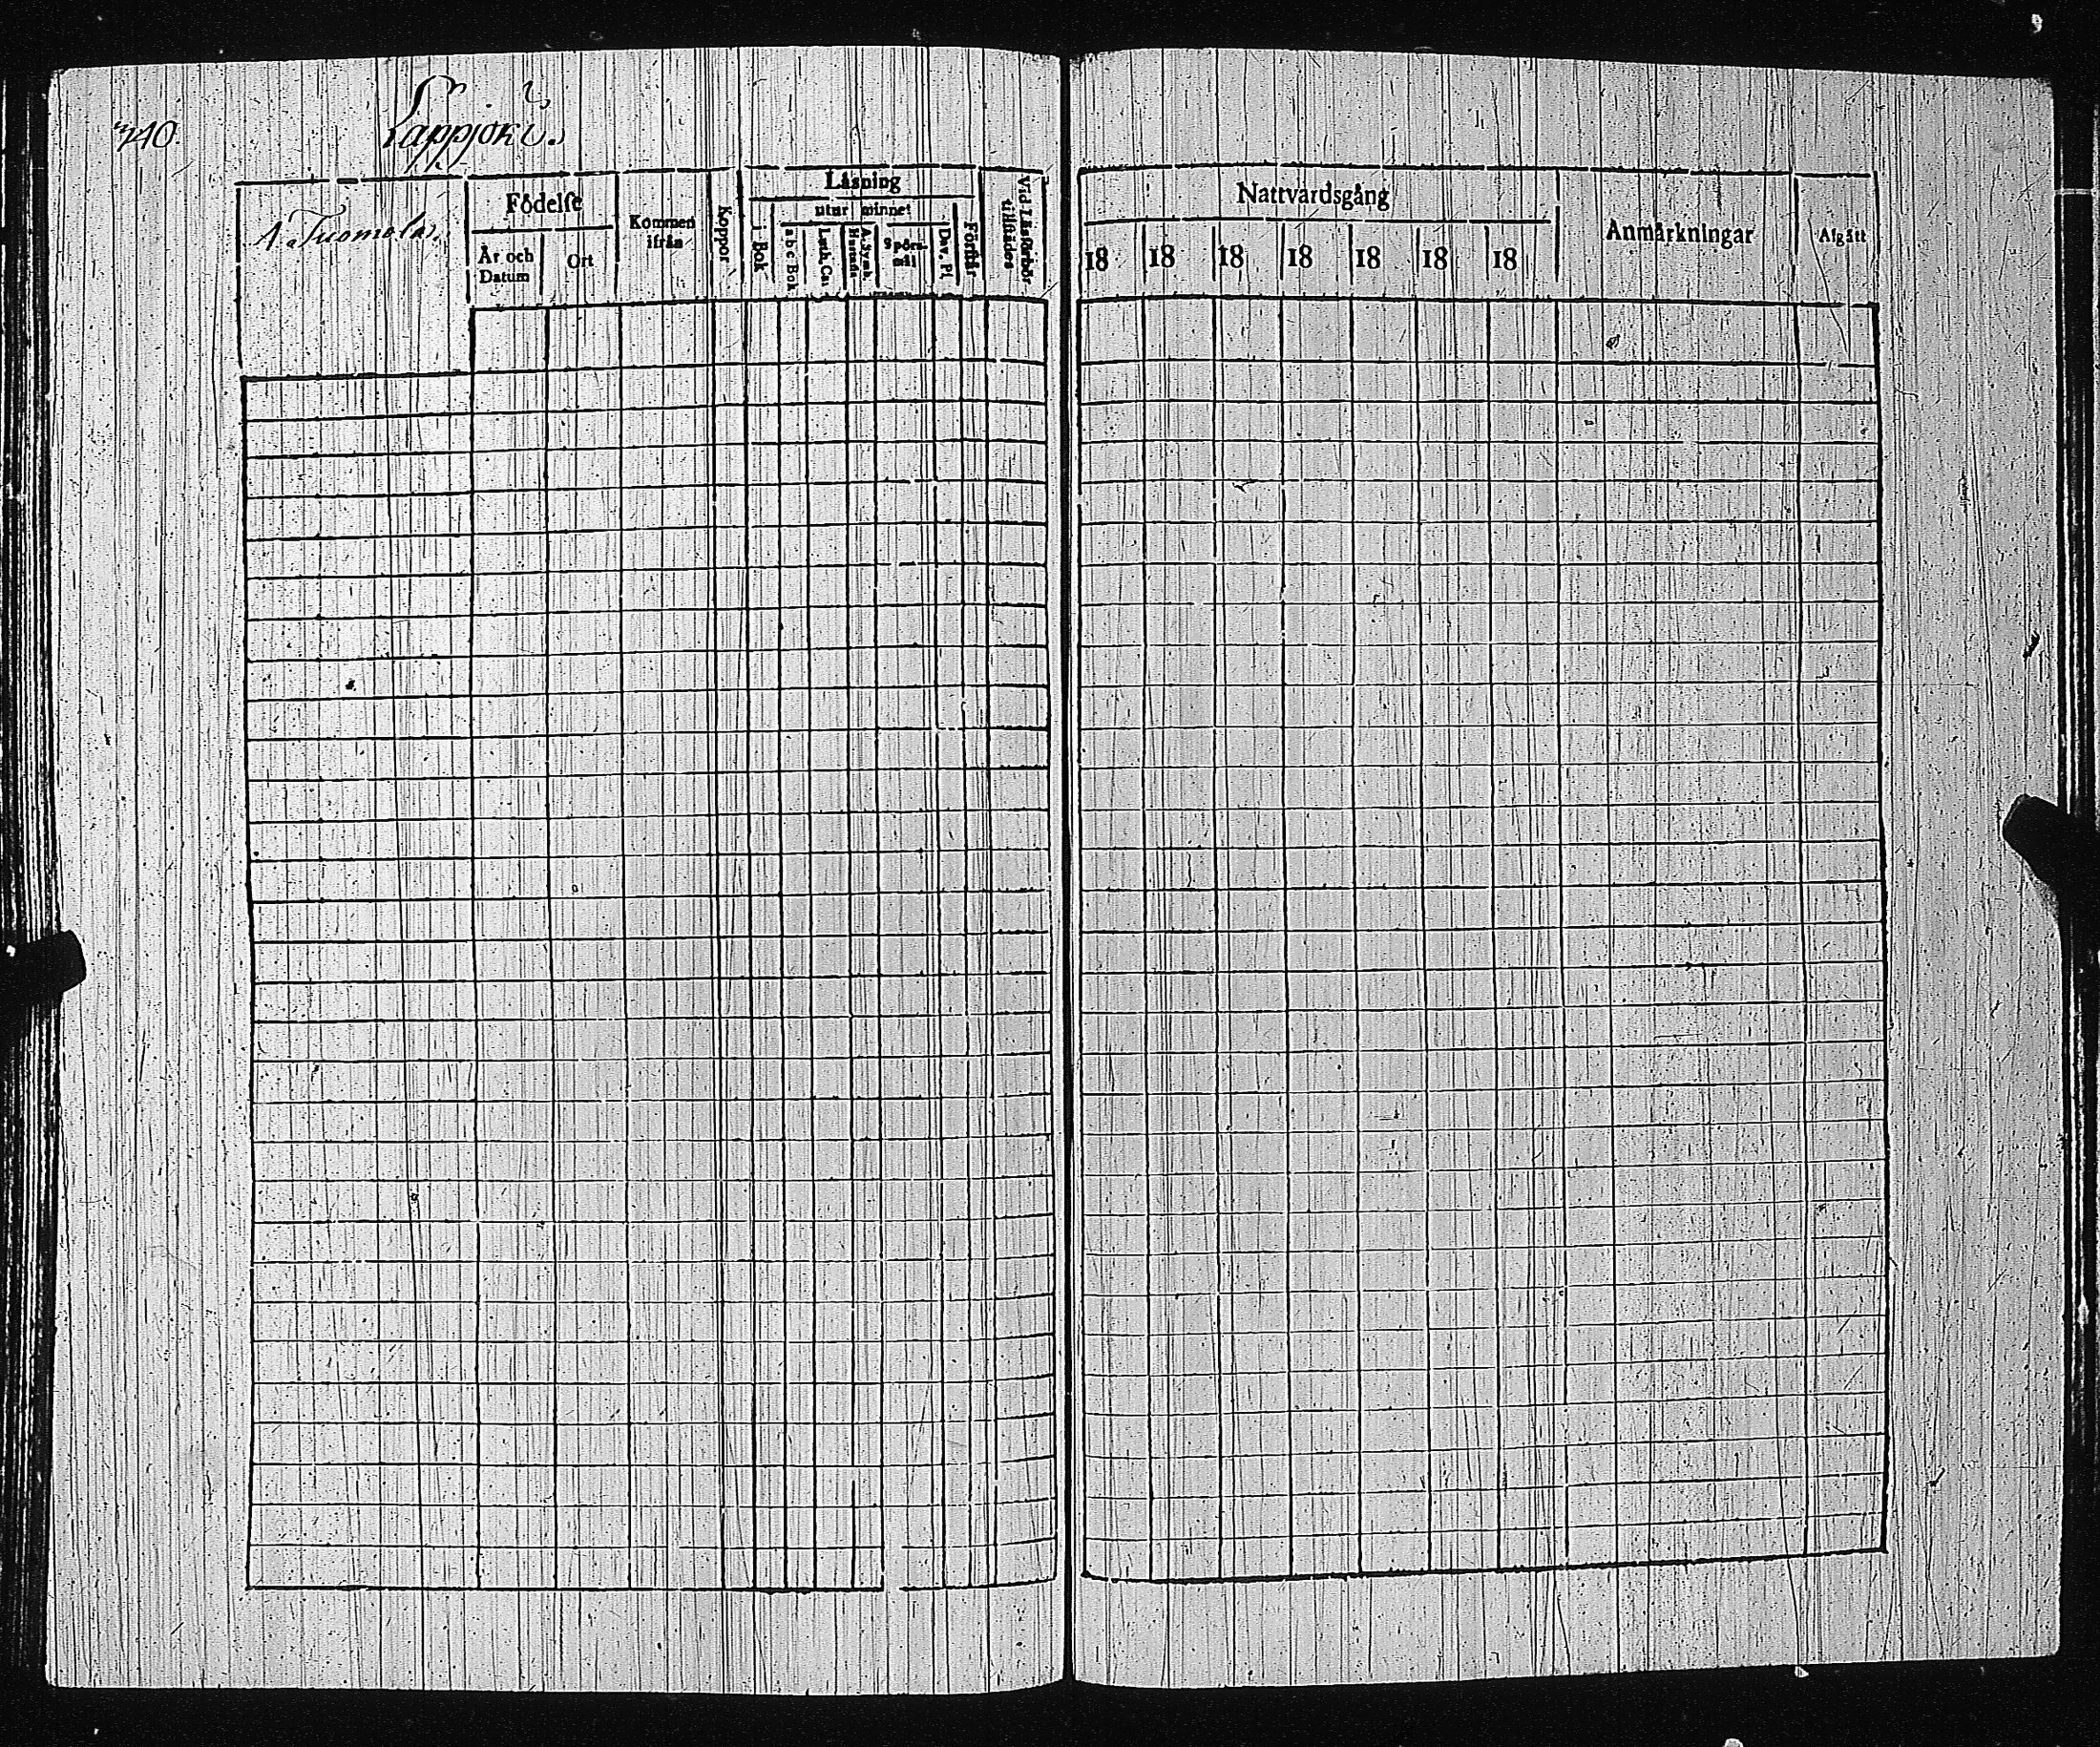 340.
Lappjoki.
1. Tuomola.
Födelse
År och Datum
Ort
Kommen ifrån
Koppor
Läsning
i Bok
utur minnet
a b c Bok
Luth. Cat.
A. Symb.
Spörsmål
Dav. Ps.
Förstår
Vid Läsförhör tillstädes
Nattvardsgång
18 18 18 18 18 18 18
Anmärkningar
Afgått